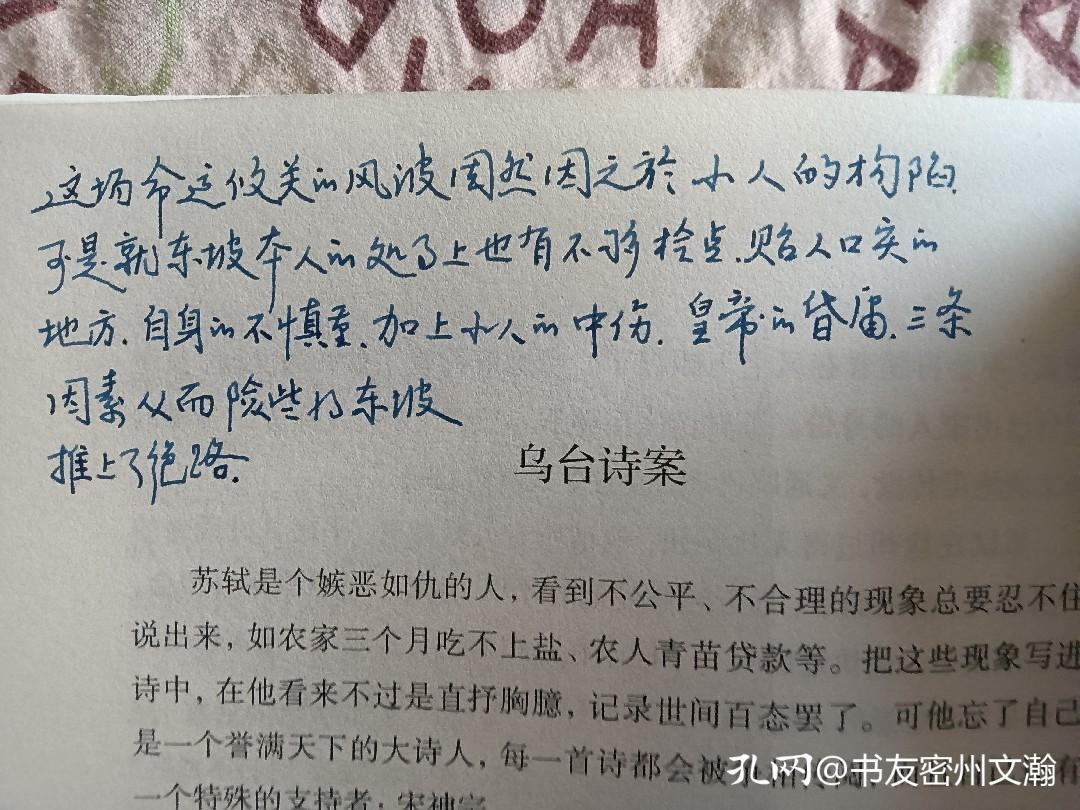 这场命运攸关的风波固然因之於小人的构陷.
可是就东坡本人的处事上也有不够检点.贻人口实的
地方.自身的不慎重.加上小人的中伤.皇帝的昏庸.三条
因素从而险些将东坡
推上了绝路.
乌台诗案
苏轼是个嫉恶如仇的人，看到不公平、不合理的现象总要忍不住
说出来，如农家三个月吃不上盐、农人青苗贷款等。把这些现象写进
诗中，在他看来不过是直抒胸臆，记录世间百态罢了。可他忘了自己
是一个誉满天下的大诗人，每一首诗都会被
一个特殊的支持者：宋神宗
孔网@书友密州文瀚